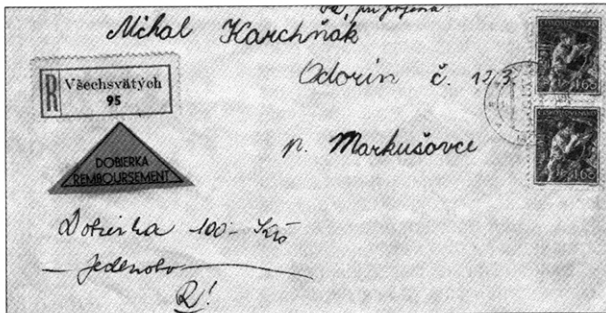 Michal Karchňák
Odorin č. 123.
p. Markušovce
R Všechsvätých
95
DOBIERKA
REMBOURSEMENT
Dobierka 100- Kčs
R!
1.60
1.60